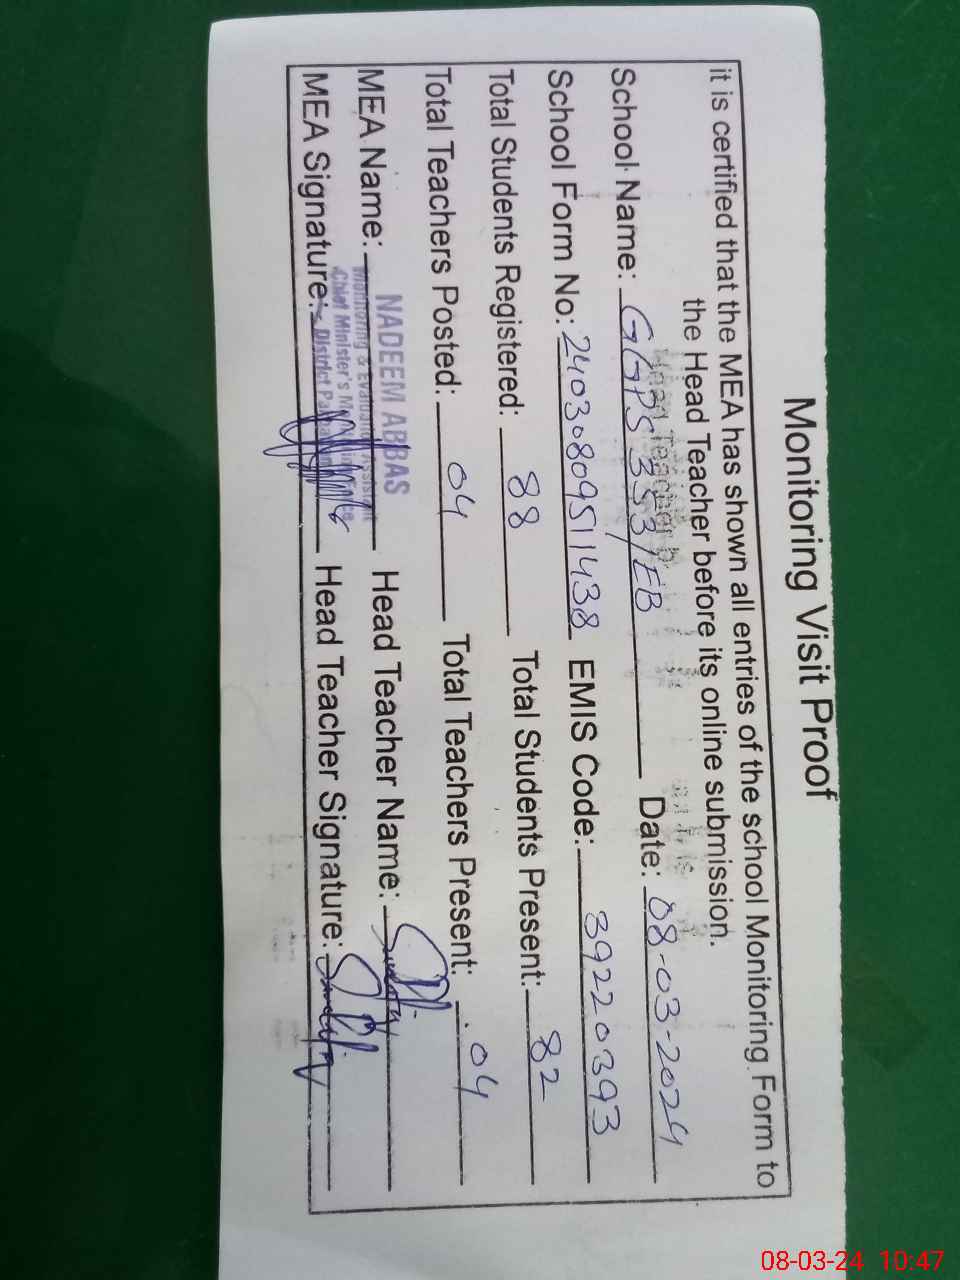 Monitoring Visit Proof
it is certified that the MEA has shown all entries of the school Monitoring Form to
the Head Teacher before its online submission.
School Name: GGPS 353/EB Date: 08-03-2024
School Form No: 24030809511438 EMIS Code: 39220393
Total Students Registered: 88 Total Students Present: 82
Total Teachers Posted: 04 Total Teachers Present: 04
MEA Name: NADEEM ABBAS Head Teacher Name:
Monitoring & Evaluation Assistant
Chief Minister's Monitoring Force
District Pakpattan
MEA Signature: Head Teacher Signature:
08-03-24 10:47